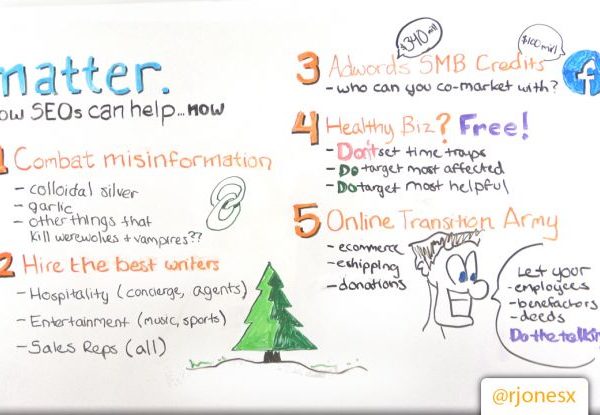 matter.
ow SEOs can help...now
1 Combat misinformation
- colloidal silver
- garlic
- other things that
kill werewolves + vampires??
2 Hire the best writers
- Hospitality (concierge, agents)
- Entertainment (music, sports)
- Sales Reps (all)
$340 mil
$100 mil
3 Adwords SMB Credits
- who can you co-market with?
f
4 Healthy Biz? Free!
- Don't set time traps
- Do target most affected
- Do target most helpful
5 Online Transition Army
- ecommerce
- eshipping
- donations
Let your
- employees
- benefactors
- deeds
Do the talkin
@rjonesx